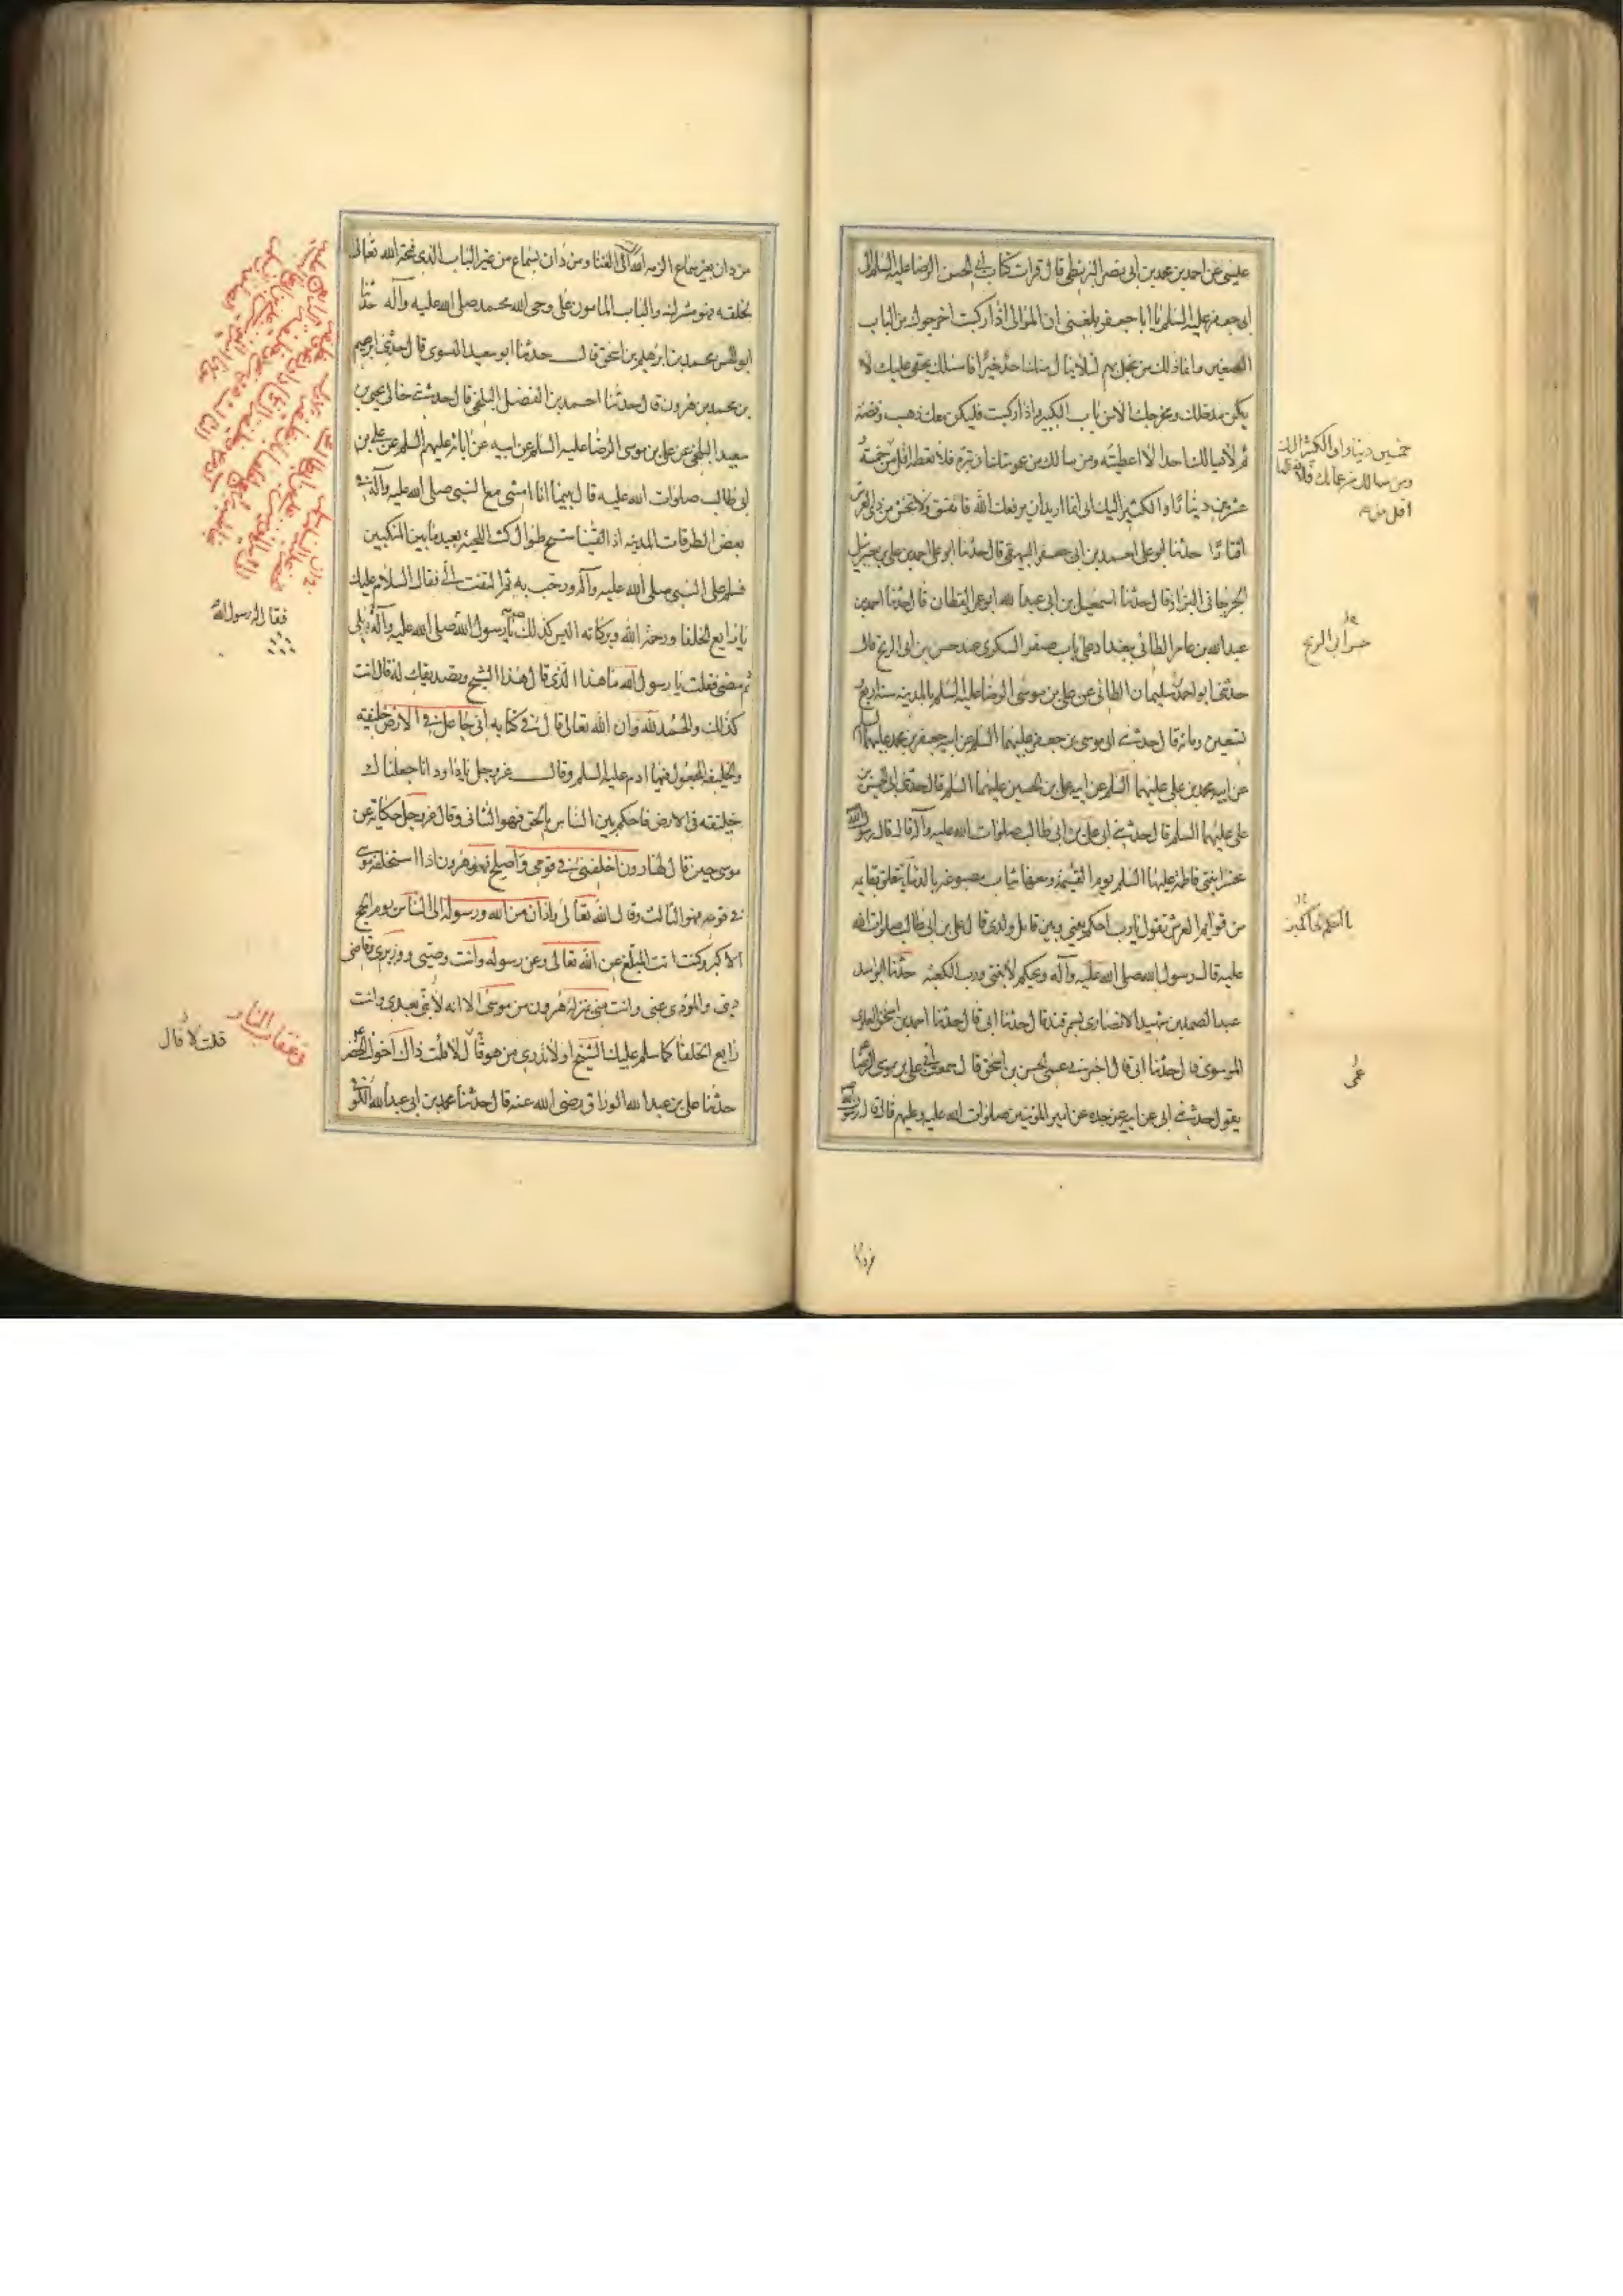 عيسى عن احمد بن محمد بن ابى نصر البزنطى قال قرات كتاب ابى الحسن الرضا عليه السلم الى
ابى جعفر عليه السلم يا ابا جعفر بلغنى ان الموالى اذا ركبت اخرجوك من الباب
الصغير وانما ذلك من بخل بهم لئلا ينال منك احد خيرا فاسئلك بحقى عليك لا
يكن مدخلك ومخرجك الا من باب الكبير واذا ركبت فليكن معك ذهب وفضة
ثم لا يسالك احد الا اعطيته ومن سالك من عمومتك ان تبره فلا تعطه اقل من خمسة
عشرين دينارا والكثير اليك انى انما اريد ان يرفعك الله فانفق ولا تخش من ذى العرش
اقتارا حدثنا ابو على احمد بن ابى جعفر البيهقى قال حدثنا ابو على احمد بن على بن جبرئيل
الجرجانى البزاز قال حدثنا اسمعيل بن ابى عبد الله ابو عمر القطان قال حدثنا احمد بن
عبد الله بن عامر الطائى ببغداد على باب صقر السكرى عند حسن بن ابى الريح قال
حدثنى ابو احمد سليمان الطائى عن على بن موسى الرضا عليه السلم بالمدينه سنة اربع
تسعين ومائة قال حدثنى ابى موسى بن جعفر عليهما السلم عن ابيه جعفر بن محمد عليهما
عن ابيه محمد بن على عليهما السلم عن ابيه على بن الحسين عليهما السلم قال حدثنى ابى الحسين بن
على عليهما السلم قال حدثنى ابى على بن ابى طالب صلوات الله عليه وآله قال قال رسول الله
تحشر ابنتى فاطمة عليها السلم يوم القيمة ومعها ثياب مصبوغه بالدماء تتعلق بقايمه
من قوايم العرش تقول يا رب احكم بينى وبين قاتل ولدى قال على بن ابى طالب صلوات الله
عليه قال رسول الله صلى الله عليه وآله ويحكم لابنتى ورب الكعبه حدثنا ابو اسد
عبد الصمد بن شهيد الانصارى بسمرقند قال حدثنا ابى قال حدثنا احمد بن اسحق العلوى
الموسوى قال حدثنا ابى قال اخبرنى عمى الحسن بن اسحق قال سمعت ابى على بن موسى الرضا
يقول حدثنى ابى عن ابيه عن جده عن امير المؤمنين صلوات الله عليه وعليهم قال قال رسول الله
خمسين دينارا والكثير اليك
ومن سالك من عماتك فلا تعطها
اقل من
حسن ابى الريح
عمى
من دان بغير سماع الزمه الله الى الفنا ومن دان بسماع من غير الباب الذى فتحه الله تعالى
لخلقه فهو مشرك والباب المامون على وحى الله محمد صلى الله عليه وآله حدثنا
ابو الحسن محمد بن ابرهيم بن اسحق قال حدثنا ابو سعيد النسوى قال حدثنى ابرهيم
بن محمد بن هرون قال حدثنا احمد بن الفضل البلخى قال حدثنى خالى يحيى بن
سعيد البلخى عن على بن موسى الرضا عليه السلم عن ابيه عن آبائه عليهم السلم عن على بن
ابى طالب صلوات الله عليه قال بينما انا امشى مع النبى صلى الله عليه وآله فى
بعض الطرقات المدينه اذ القينا شيخ طوال كث اللحيه بعيد ما بين المنكبين
فسلم على النبى صلى الله عليه وآله ورحب به ثم التفت الى فقال السلام عليك
يا رابع الخلفا ورحمة الله وبركاته اليس كذلك يا رسول الله صلى الله عليه وآله بلى
ثم مضى فقلت يا رسول الله ما هذا الذى قال هذا الشيخ وتصديقك له قال انت
كذلك والحمد لله وان الله تعالى قال فى كتابه انى جاعل فى الارض خليفه
والخليفه المجعول فيها ادم عليه السلم وقال عز وجل يا داود انا جعلناك
خليفة فى الارض فاحكم بين الناس بالحق فهو الثانى وقال عز وجل حكاية عن
موسى حين قال لهارون اخلفنى فى قومى واصلح فهو هرون اذا استخلفه موسى
فى قومه فهو الثالث وقال الله تعالى واذان من الله ورسوله الى الناس يوم الحج
الاكبر وكنت انت المبلغ عن الله تعالى وعن رسوله وانت وصيى ووزيرى وقاضى
دينى والمؤدى عنى وانت منى بمنزلة هرون من موسى الا انه لا نبى بعدى وانت
رابع الخلفا كما سلم عليك الشيخ اولا تدرى من هو قال لا قلت ذاك اخوك الخضر
حدثنا على بن عبد الله الوراق رضى الله عنه قال حدثنا محمد بن ابى عبد الله الكوفى
فقال رسول الله
قلت لا قال